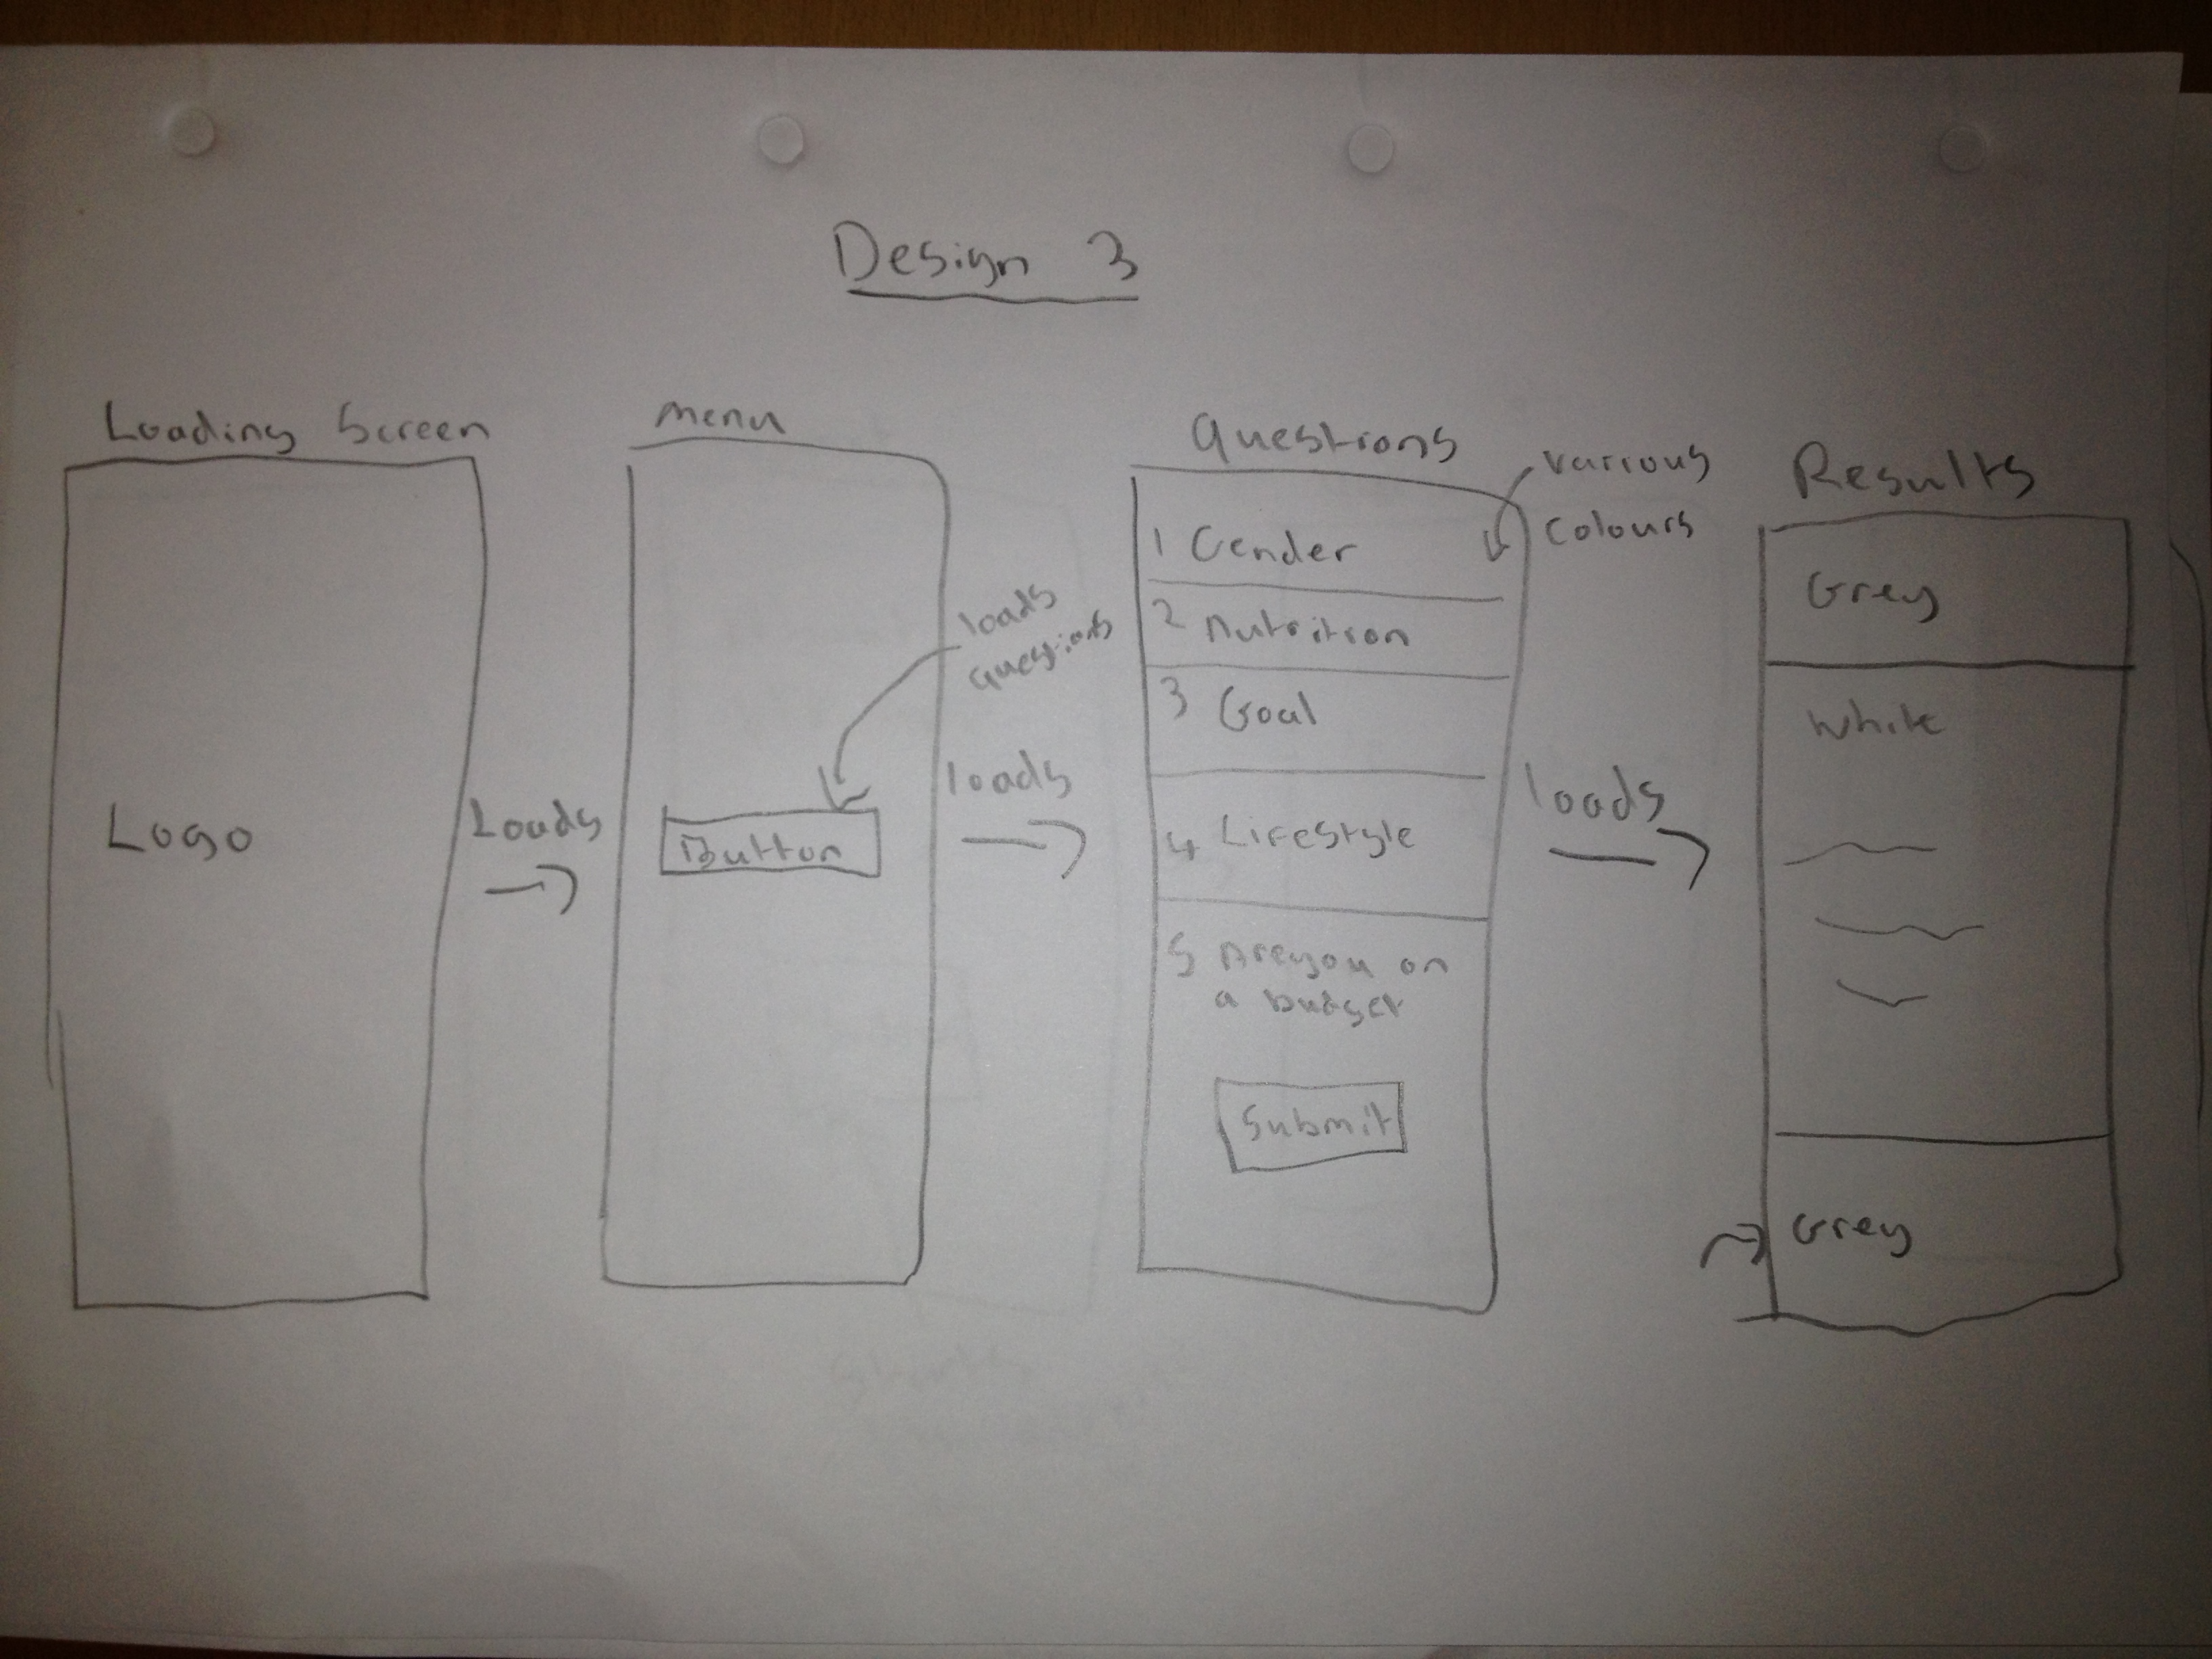 Design 3
Loading Screen
Logo
Loads
menu
loads
questions
Button
loads
Questions
various
colours
1 Gender
2 Nutrition
3 Goal
4 Lifestyle
5 Are you on
a budget
Submit
loads
Results
Grey
White
Grey